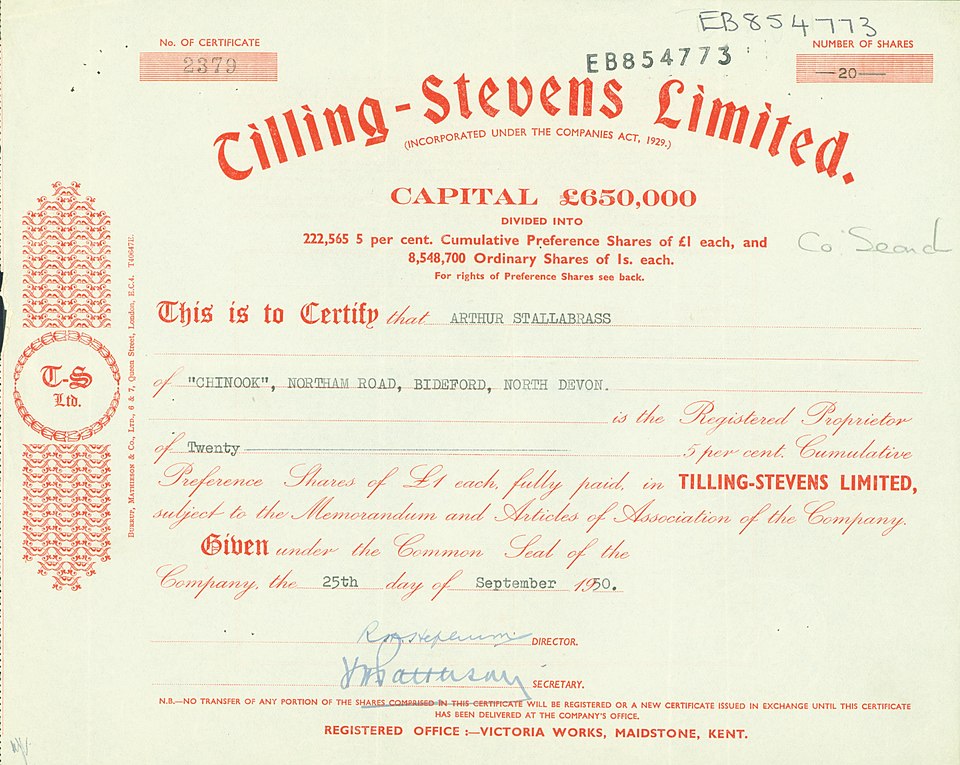 EB854773
No. OF CERTIFICATE
2379
EB854773
NUMBER OF SHARES
20
Tilling-Stevens Limited.
(INCORPORATED UNDER THE COMPANIES ACT, 1929.)
CAPITAL £650,000
DIVIDED INTO
222,565 5 per cent. Cumulative Preference Shares of £1 each, and
8,548,700 Ordinary Shares of 1s. each.
For rights of Preference Shares see back.
Co
This is to Certify that ARTHUR STALLABRASS
of "CHINOOK", NORTHAM ROAD, BIDEFORD, NORTH DEVON.
is the Registered Proprietor
of Twenty 5 per cent. Cumulative
Preference Shares of £1 each, fully paid, in TILLING-STEVENS LIMITED,
subject to the Memorandum and Articles of Association of the Company.
Given under the Common Seal of the
Company, the 25th day of September 1950.
DIRECTOR.
SECRETARY.
N.B.—NO TRANSFER OF ANY PORTION OF THE SHARES COMPRISED IN THIS CERTIFICATE WILL BE REGISTERED OR A NEW CERTIFICATE ISSUED IN EXCHANGE UNTIL THIS CERTIFICATE
HAS BEEN DELIVERED AT THE COMPANY'S OFFICE.
REGISTERED OFFICE :—VICTORIA WORKS, MAIDSTONE, KENT.
T-S
Ltd.
BURRUP, MATHIESON & CO., LTD., 6 & 7, Queen Street, London, E.C.4. T40647E.